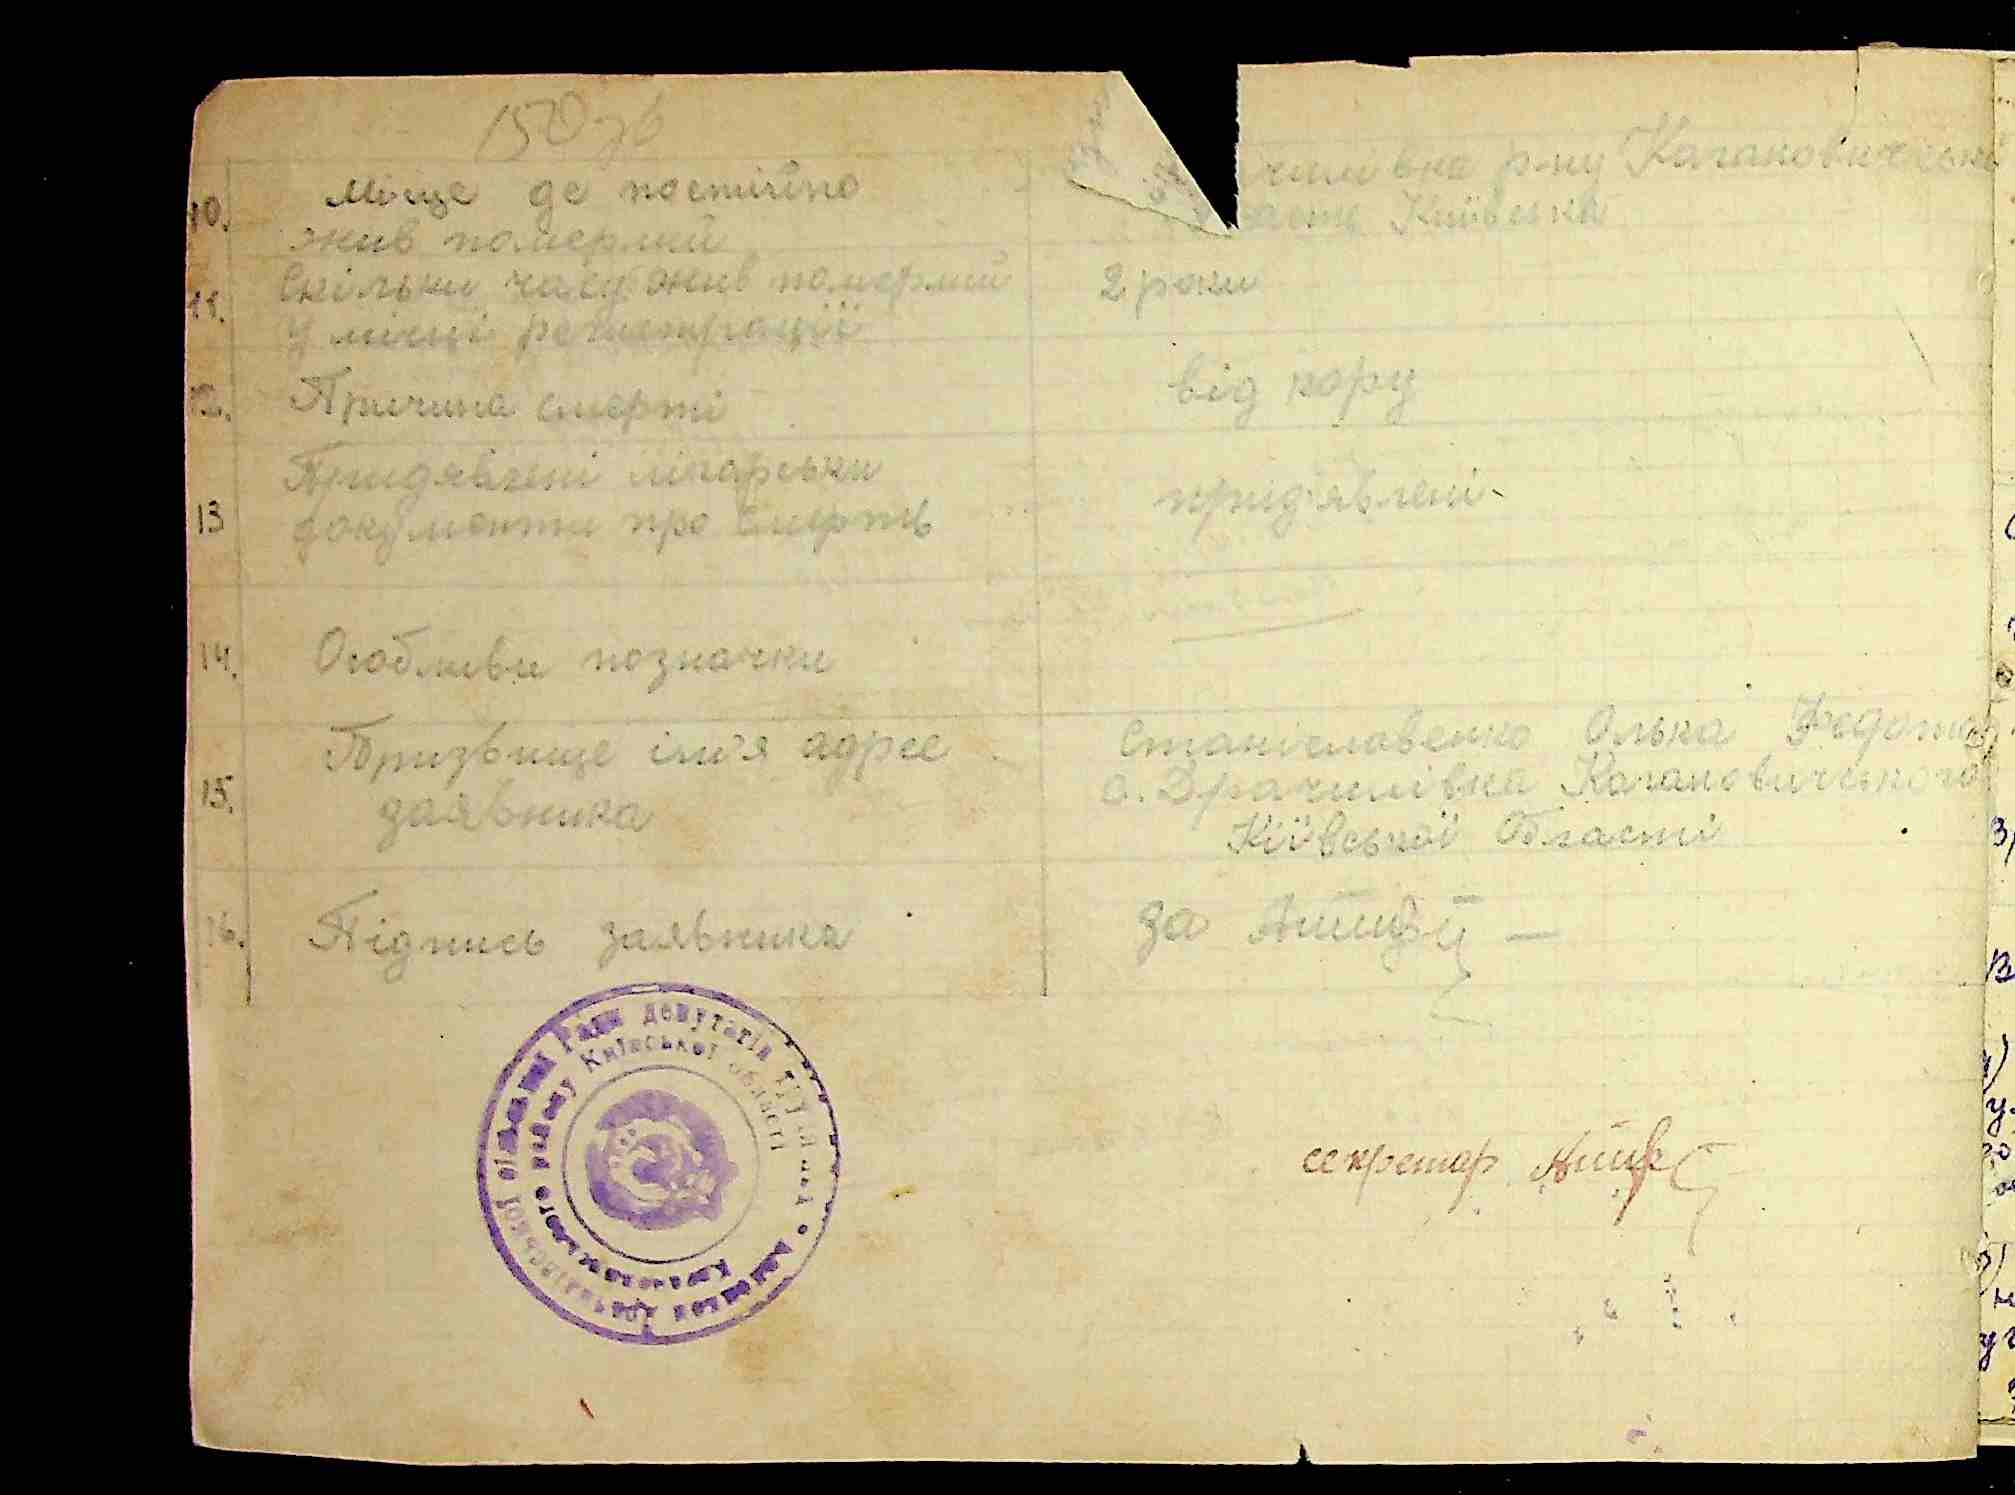 150 зв
10. Місце де постійно
жив помермий
чилівка р-ну Кагановичськ
ласть Київська
11. Скільки часу жив помермий
у місці регистрації
2 роки
12. Причина смерті
від кору
13 Придявлені лікарськи
документи про смерть
придявлені
14. Особливи позначки
15. Призвище ім'я адрес
заявника
Станіславенко Олька Федотов
с. Драчилівка Кагановичського
Кіївської Області
16. Підпись заявника
за
секретар
Ради депутатів
району Київської області